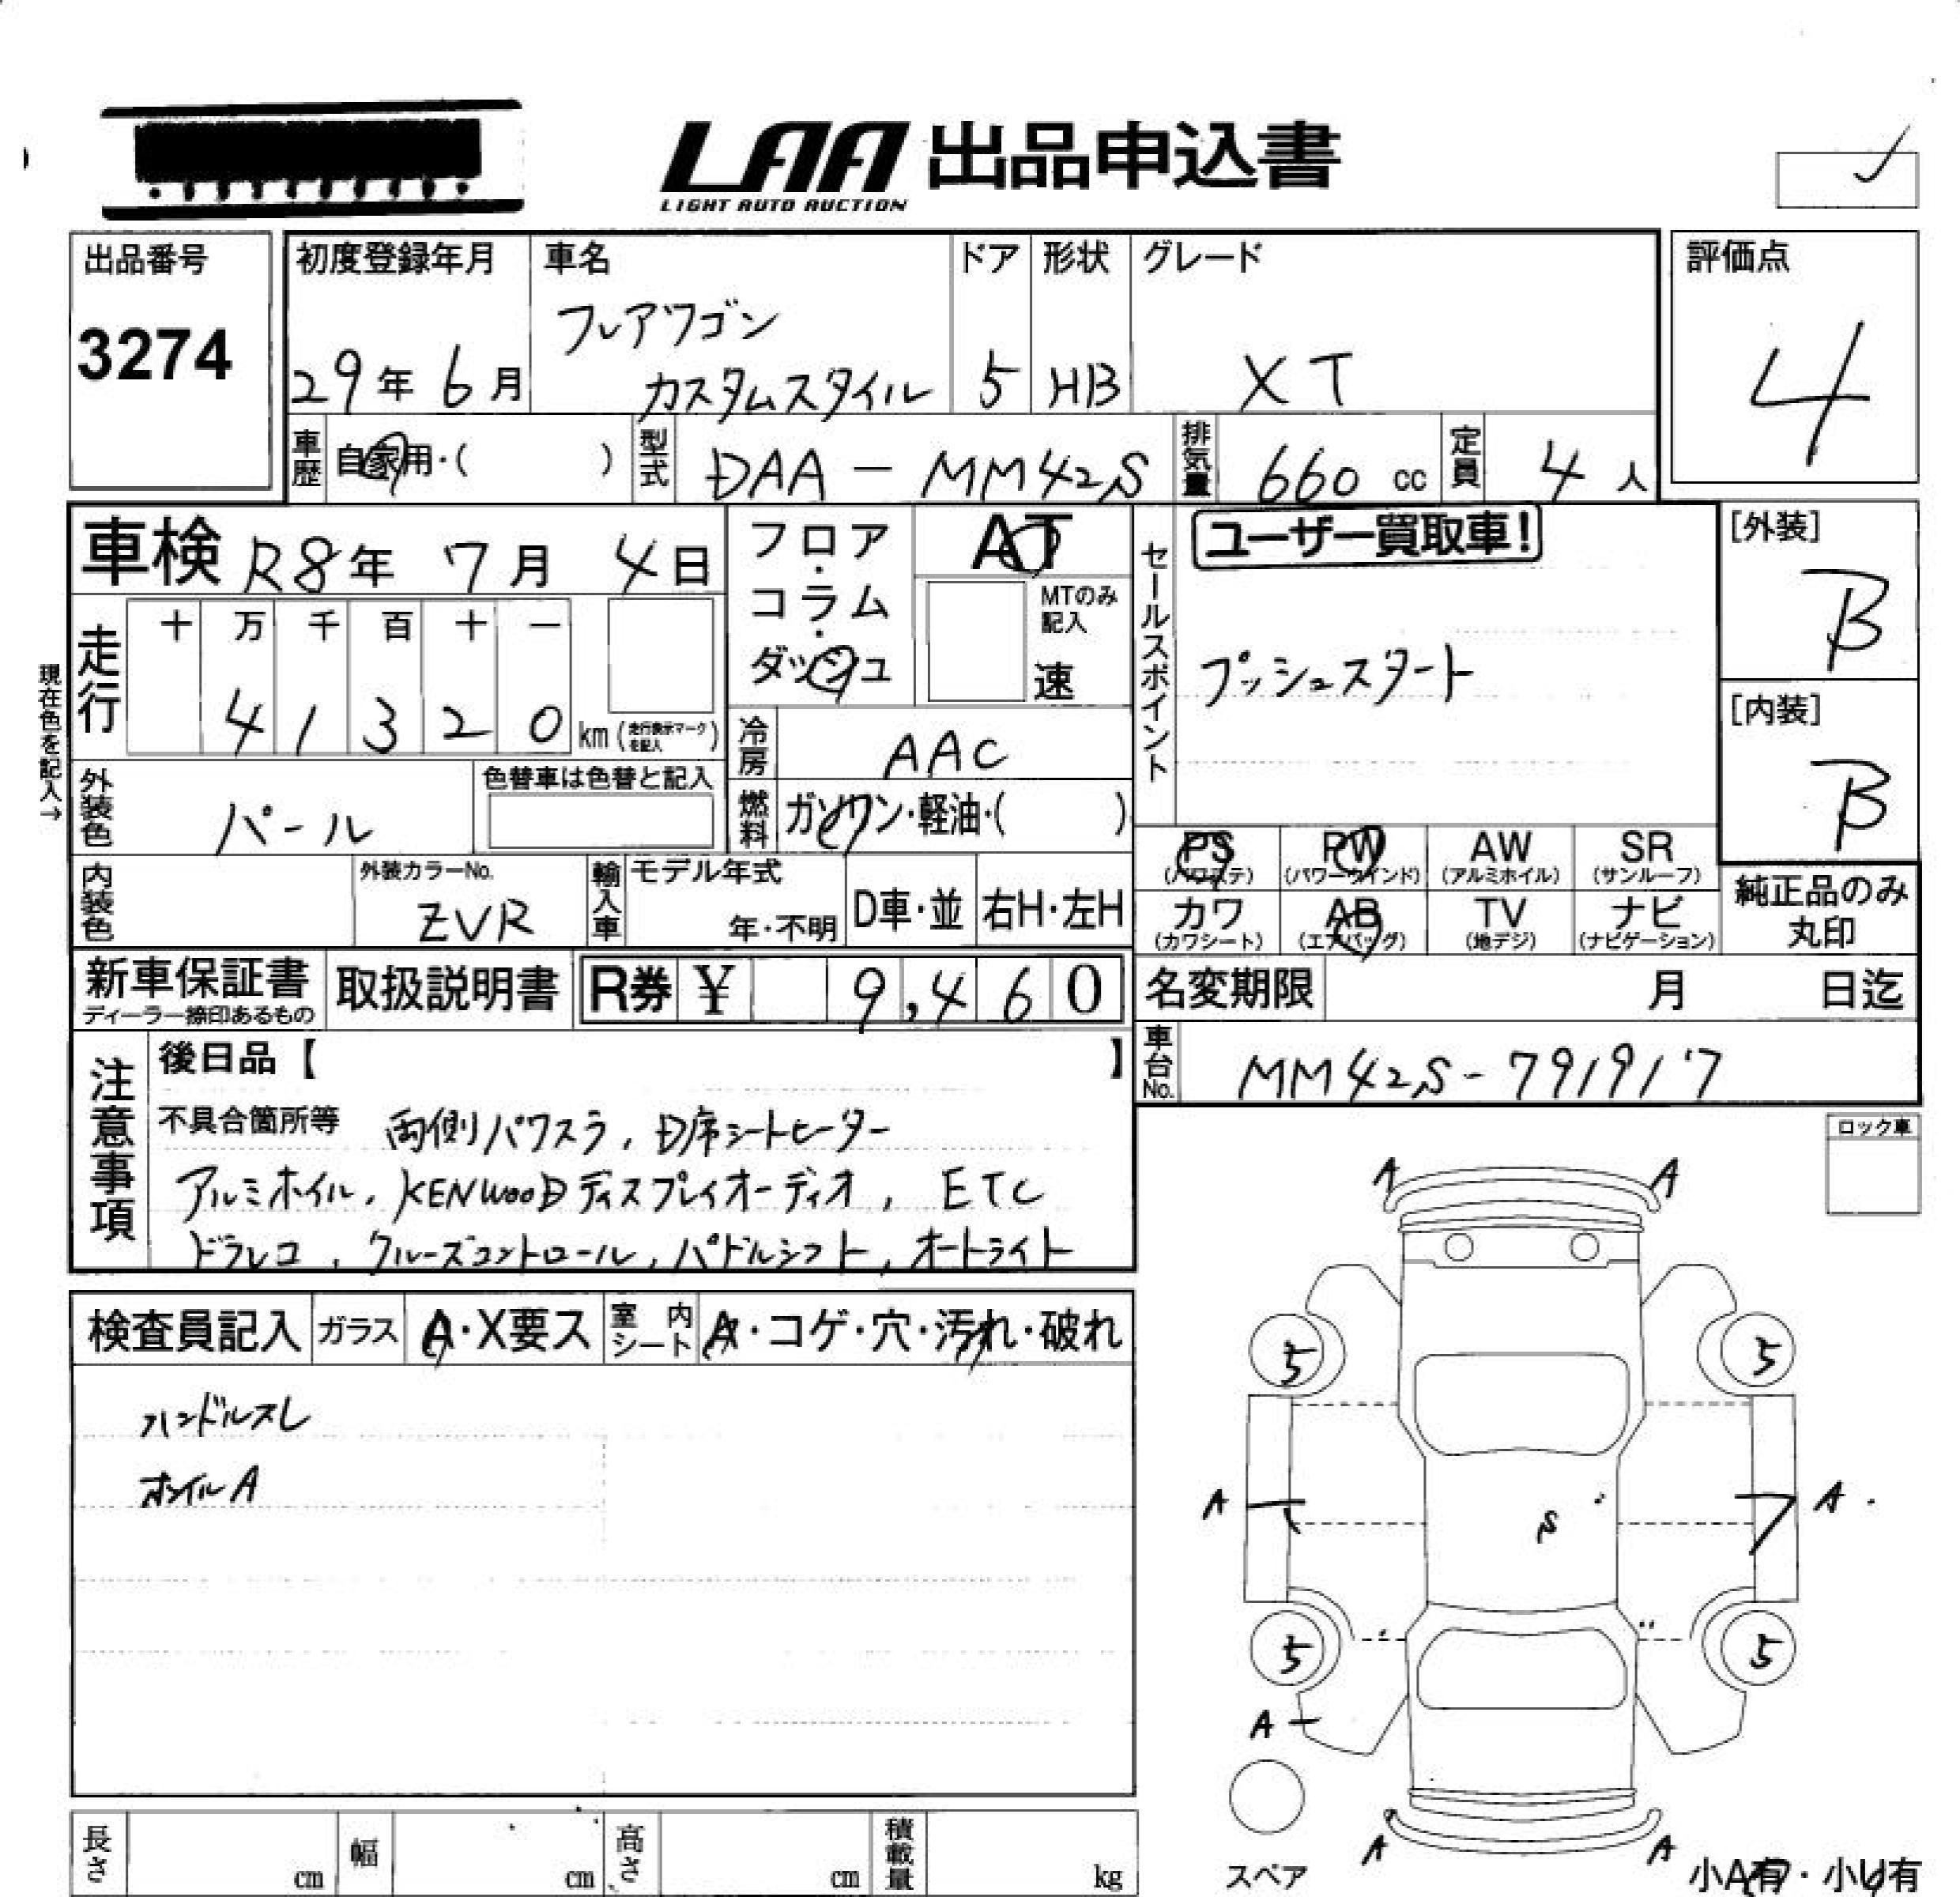 LAA 出品申込書
LIGHT AUTO AUCTION
出品番号
3274
初度登録年月
29年 6月
車名
フレアワゴン
カスタムスタイル
ドア
5
形状
HB
グレード
XT
評価点
4
車歴 自家用・( )
型式 DAA-MM42S
排気量 660 cc
定員 4人
車検 R8年 7月 4日
フロア・コラム・ダッシュ
AT
MTのみ記入
速
セールスポイント
ユーザー買取車!
プッシュスタート
[外装]
B
[内装]
B
現在色を記入→
走行
十 万 千 百 十 一
4 1 3 2 0 km (走行表示マークを記入)
冷房 AAC
燃料 ガソリン・軽油・( )
外装色 パール
色替車は色替と記入
内装色
外装カラーNo.
ZVR
輸入車
モデル年式
年・不明
D車・並
右H・左H
PS (パワステ)
PW (パワーウインド)
AW (アルミホイル)
SR (サンルーフ)
カワ (カワシート)
AB (エアバッグ)
TV (地デジ)
ナビ (ナビゲーション)
純正品のみ
丸印
新車保証書
ディーラー捺印あるもの
取扱説明書
R券 ¥ 9,460
名変期限 月 日迄
車台No. MM42S-791917
注意事項
後日品【 】
不具合箇所等 両側パワスラ, D席シートヒーター
アルミホイル, KENWOODディスプレイオーディオ, ETC
ドラレコ, クルーズコントロール, パドルシフト, オートライト
ロック車
検査員記入
ガラス A・X要ス
室内シート A・コゲ・穴・汚れ・破れ
ハンドルスレ
ホイルA
A A
5 5
A S A
5 5
A
A A
スペア
小A有・小U有
長さ cm
幅 cm
高さ cm
積載量 kg